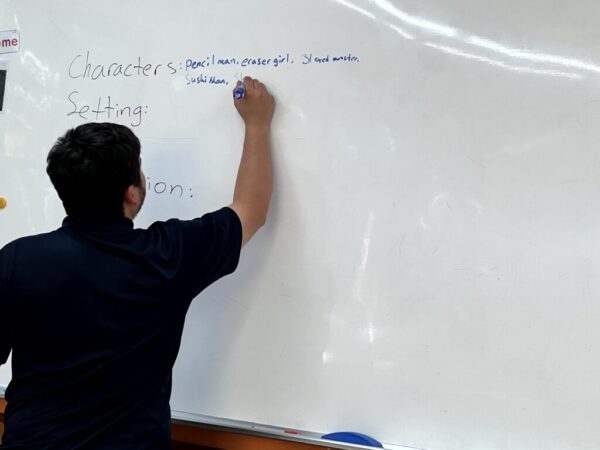 ome
Characters: pencil man, eraser girl, 3 eyed monster,
Sushi Man, S
Setting:
ion: